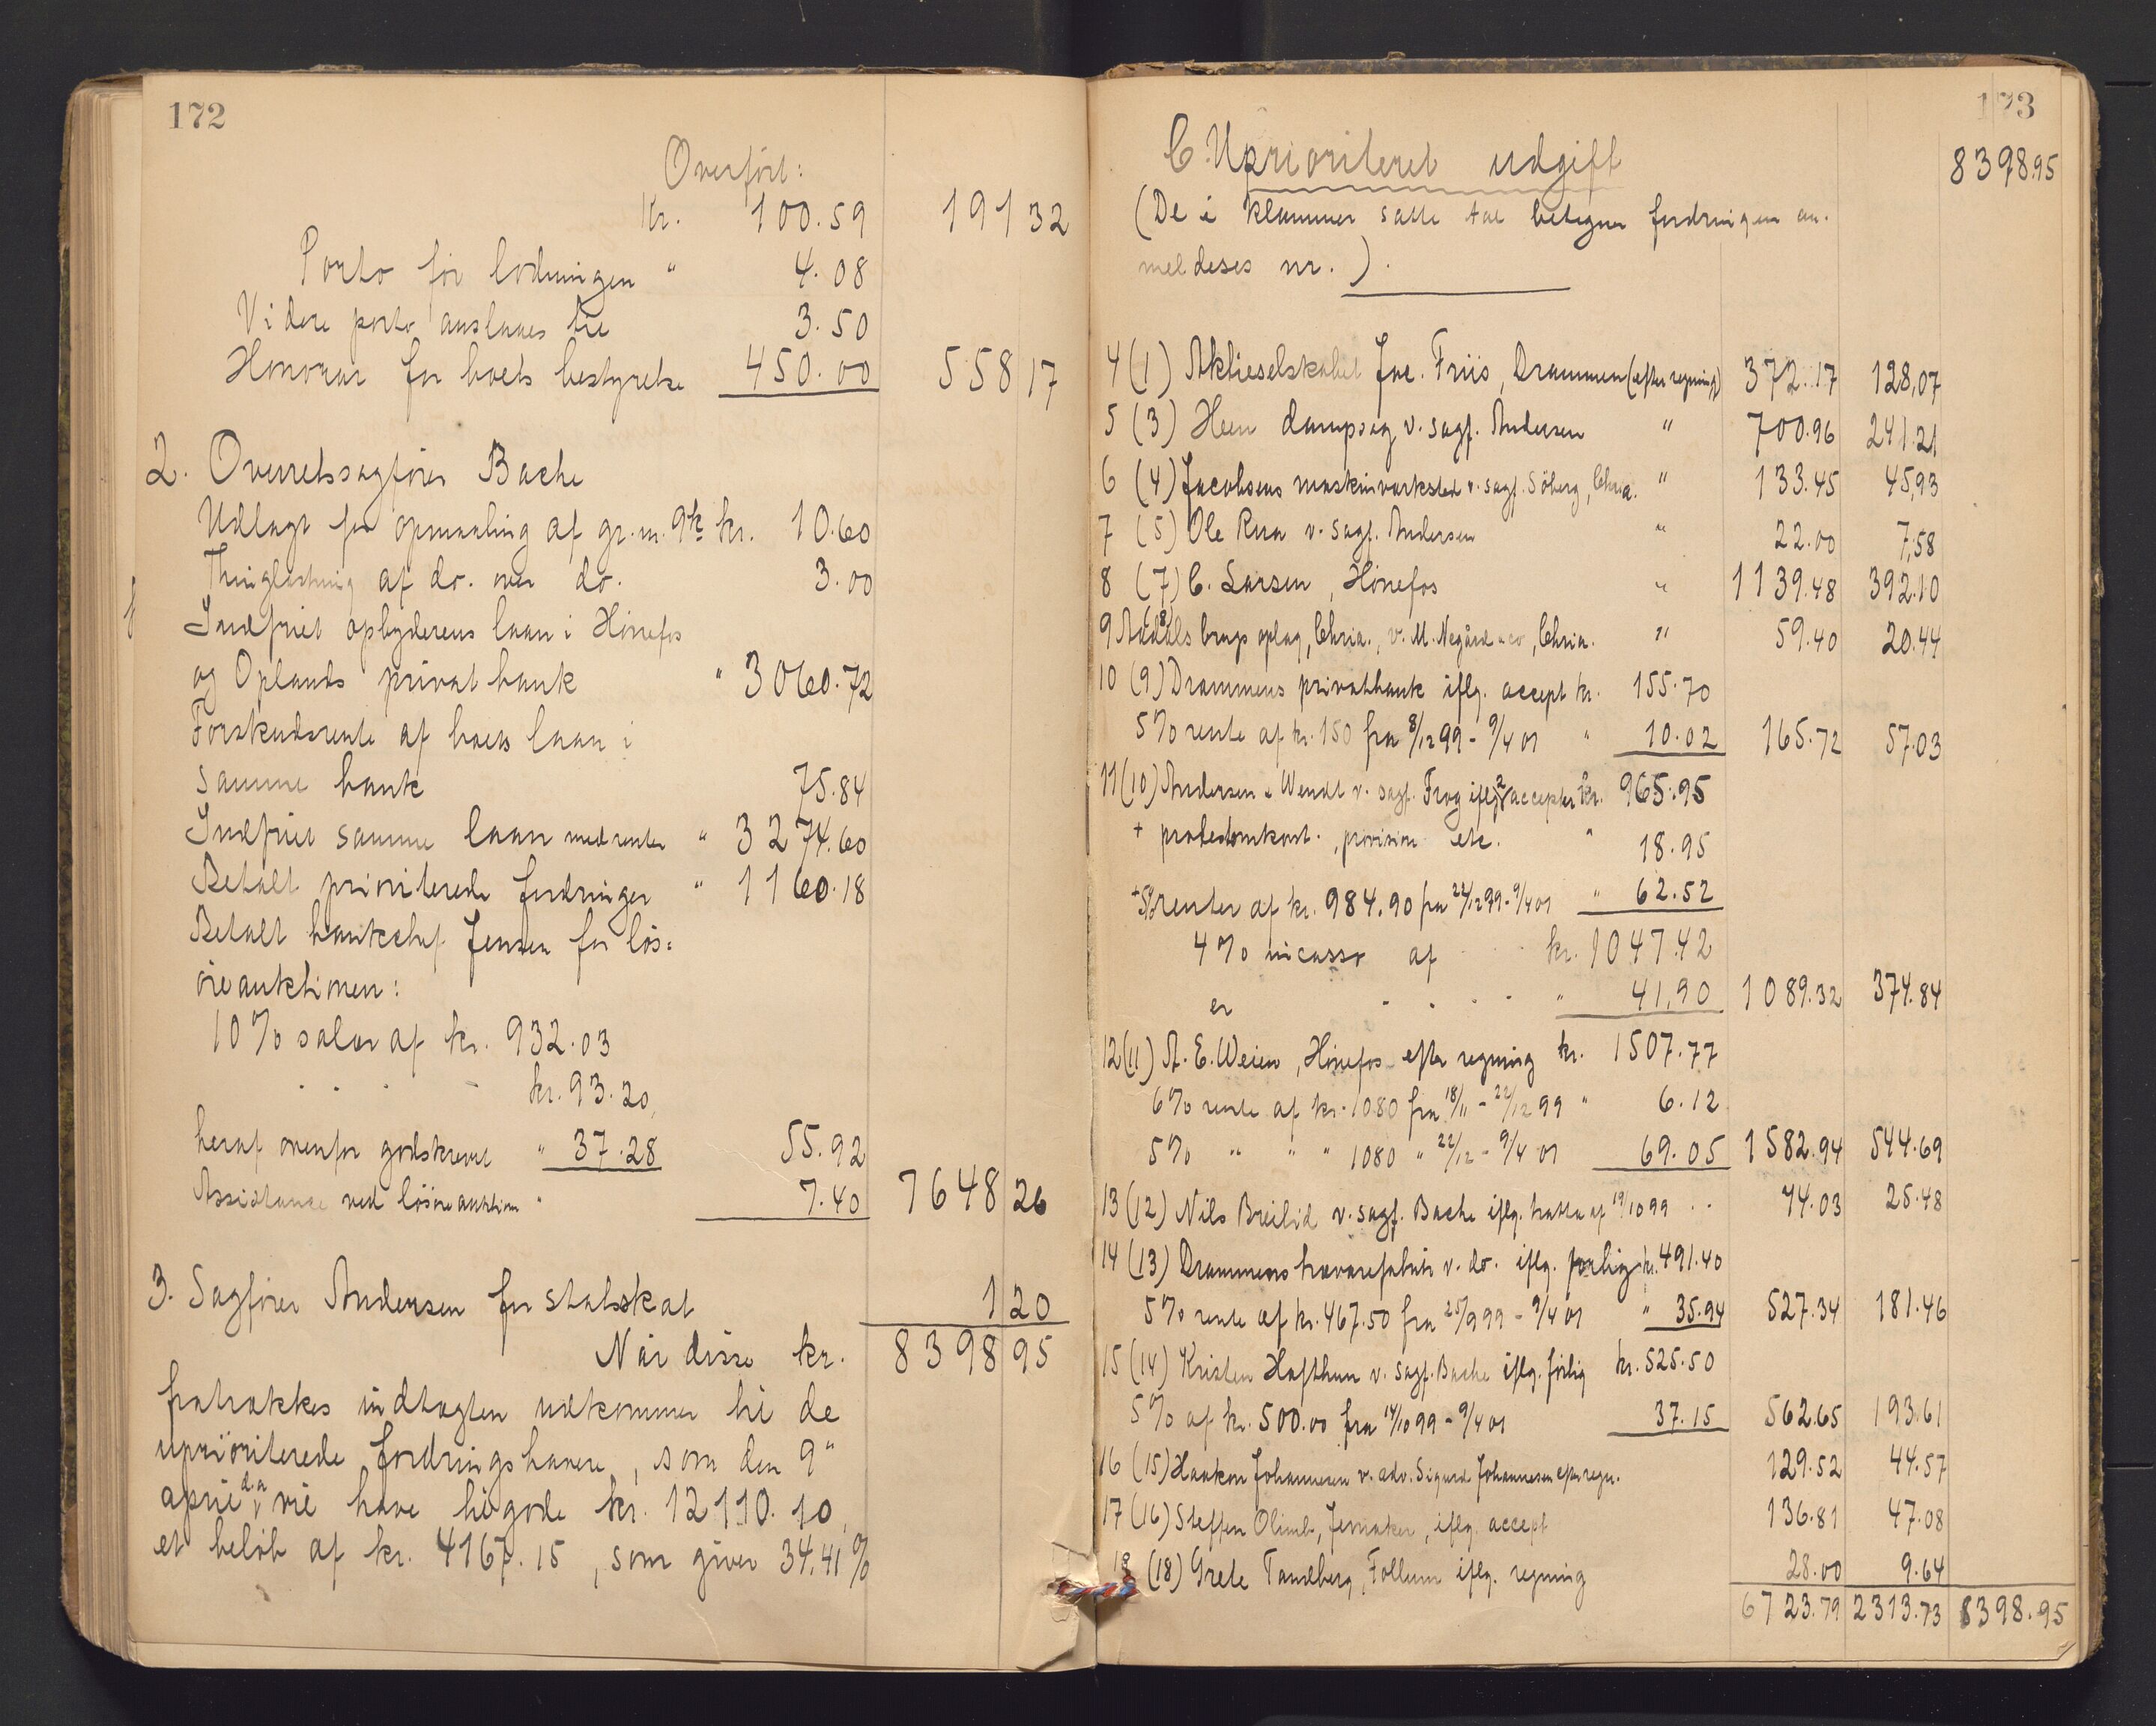 172
Overført:
Kr. 100.59 191 32
Porto for lodningen " 4.08
Videre porto anslaaes til 3.50
Honorar for boets bestyrelse 450.00 558 17
2. Overretssagfører Bache
Udlagt for opmaaling af gr. nr. 9k kr. 10.60
Thinglæsning af do. over do. 3.00
Indfriet opbyderens laan i Hønefos
og Oplands privatbank " 3060.72
Forskudsrente af boets laan i
samme bank 75.84
Indfriet samme laan med renter " 3274.60
Betalt prioriterede fordringer " 1160.18
Betalt bankchef Jensen for løs=
øreauktionen:
10% salær af kr. 932.03
kr. 93.20
heraf ovenfor godskrevet " 37.28 55.92
Assistance ved løsøreauktion " 7.40 7648 26
3. Sagfører Andersen for statsskat 1 20
Når disse kr. 8398 95
fratrækkes indtægten udkommer til de
uprioriterede fordringshavere, som den 9"
april da vil have tilgode kr. 12110.10,
et beløb af kr. 4167.15, som giver 34,41%
173
C. Uprioriteret udgift 8398.95
(De i klammer satte tal betegner fordringen an-
meldeses nr.).
4 (1) Aktieselskabet Jac. Friis, Drammen (efter regning) 372.17 128,07
5 (3) Heen dampsag v. sagf. Andersen " 700.96 241.21
6 (4) Jacobsens maskinværksted v. sagf. Söberg, Chria. " 133.45 45,93
7 (5) Ole Rua v. sagf. Andersen " 22.00 7,58
8 (7) C. Larsen, Hönefos " 1139.48 392.10
9 (8) Aadals brugs oplag, Chria., v. M. Negård & co, Chria. " 59.40 20.44
10 (9) Drammens privatbank iflg. accept kr. 155.70
5% rente af kr. 150 fra 8/12 99 - 9/4 01 " 10.02 165.72 57.03
11 (10) Andersen & Wendt v. sagf. Frog iflg. 2 accepter kr. 965.95
+ protestomkost., provision etc. " 18.95
+ 5% renter af kr. 984.90 fra 22/12 99 - 9/4 01 " 62.52
4% incasso af kr. 1047.42
er " 41,90 1089.32 374.84
12 (11) A. E. Weien, Hönefos efter regning kr. 1507.77
6% rente af kr. 1080 fra 18/11 - 22/12 99 " 6.12
5% " " " 1080 " 22/12 - 9/4 01 69.05 1582.94 544.69
13 (12) Nils Breilid v. sagf. Bache iflg. tratta af 19/10 99 74.03 25.48
14 (13) Drammens trævarefabrik v. do. iflg. forlig kr. 491.40
5% rente af kr. 467.50 fra 25/9 99 - 9/4 01 " 35.94 527.34 181.46
15 (14) Kristen Hafthun v. sagf. Bache iflg. forlig kr. 525.50
5% af kr. 500.00 fra 14/10 99 - 9/4 01 37.15 562.65 193.61
16 (15) Haakon Johannesen v. adv. Sigurd Johannesen efter regn. 129.52 44.57
17 (16) Steffen Olimb, Jevnaker, iflg. accept 136.81 47.08
18 (18) Grete Tandberg, Follum iflg. regning 28.00 9.64
6723.79 2313.73 8398.95